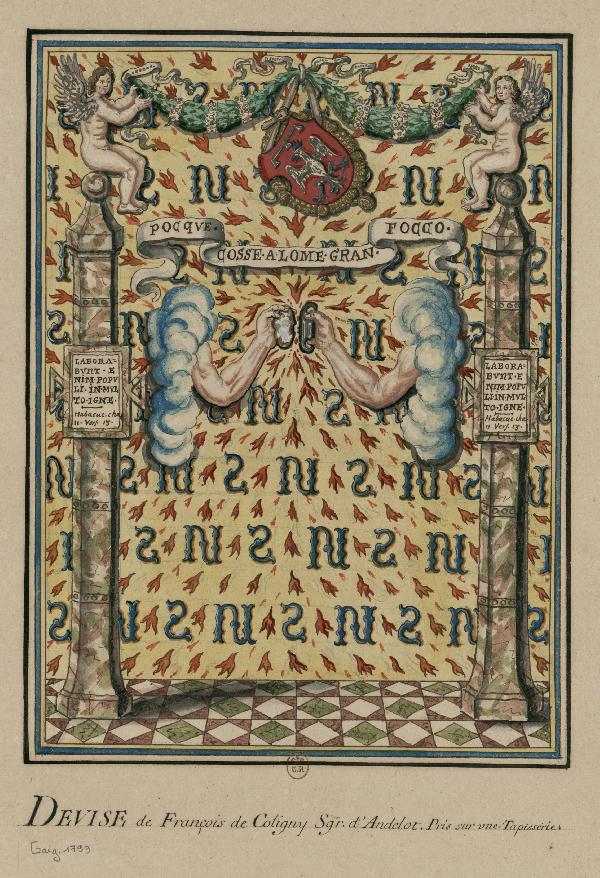 POCQVE. FOCCO.
COSSE·A·LOME·GRAN·
LABORA=
BVNT·E
NIM·POPV
LI·IN·MVL
TO·IGNE·
Habacuc·cha
11· Vers. 13·
LABORA=
BVNT·E
NIM·POPV
LI·IN·MVL
TO·IGNE·
Habacuc·cha
11 Vers. 13·
DEVISE, de François de Coligny Sgr. d'Andelot. Pris sur une Tapisserie.
Gaig. 1793